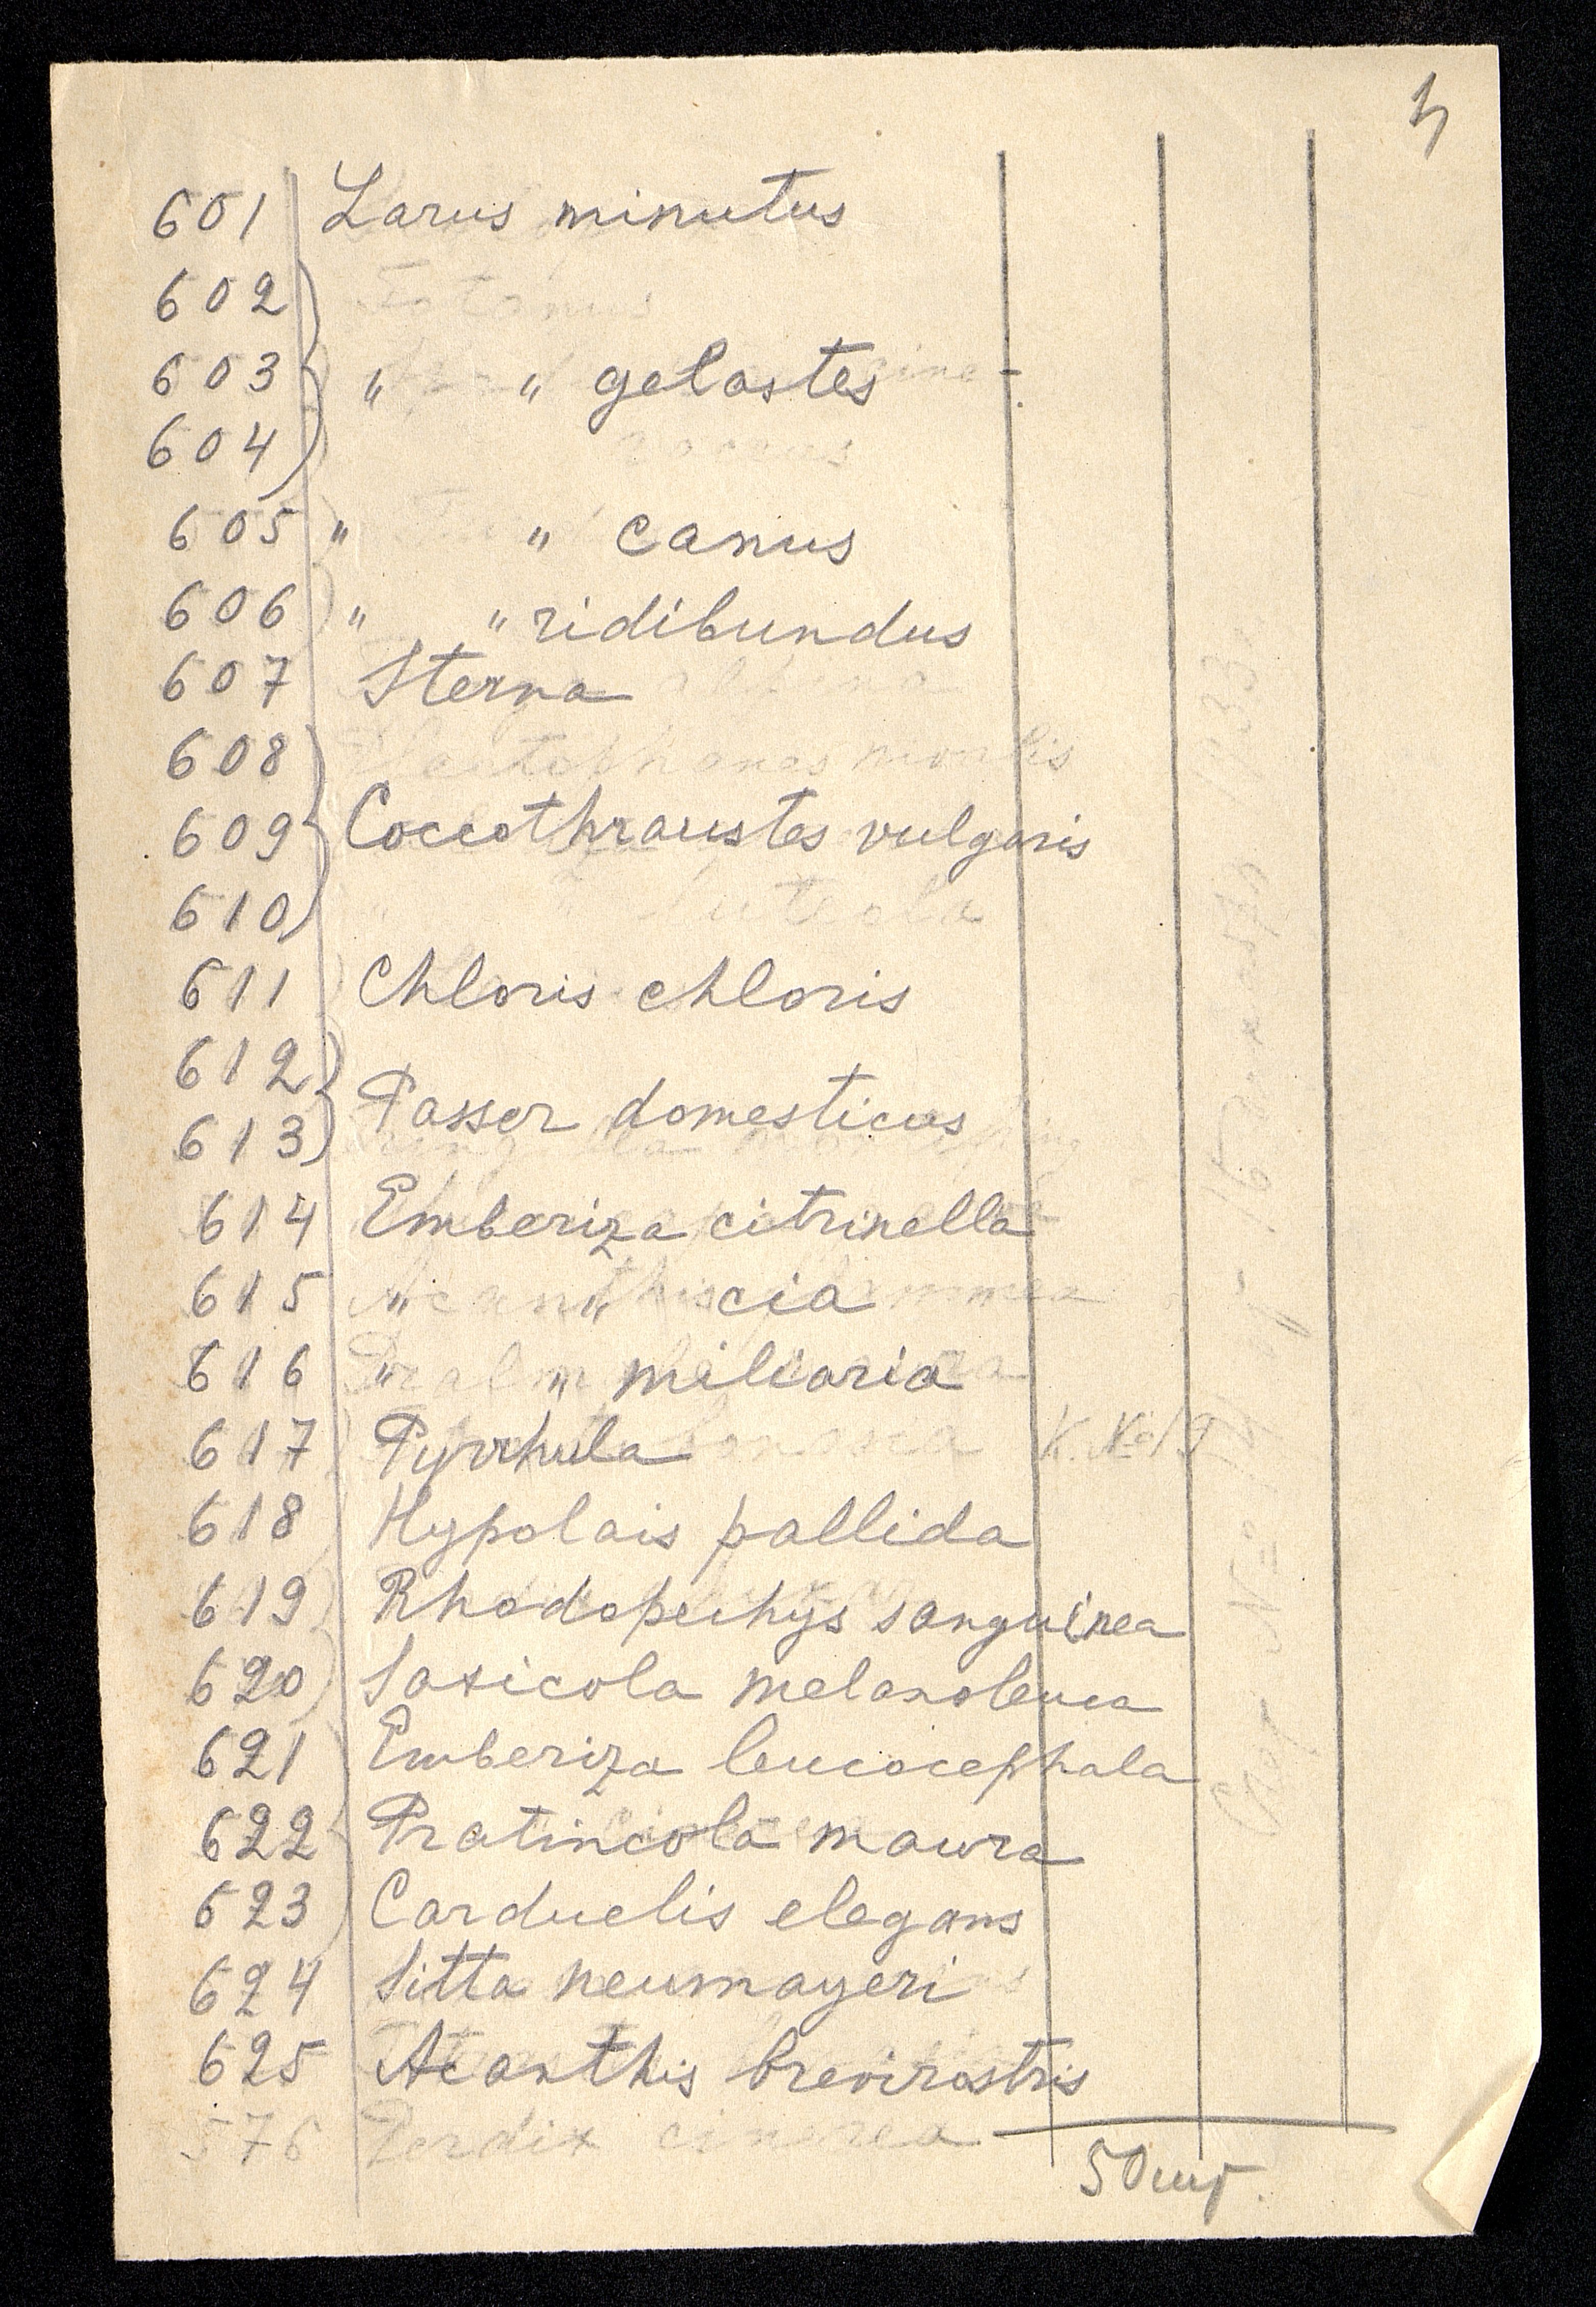 601 Larus minutus
602
603 " " gelastes -
604
605 " " canus
606 " " ridibundus
607 Sterna
608
609 Coccothraustes vulgaris
610
611 Chloris chloris
612
613 Passer domesticus
614 Emberiza citrinella
615 " " cia
616 " " miliaria
617 Pyrrhula
618 Hypolais pallida
619 Rhodopechys sanguinea
620 Saxicola melanoleuca
621 Emberiza leucocephala
622 Pratincola maura
623 Carduelis elegans
624 Sitta neumayeri
625 Acanthis brevirostris
576 Perdix cinerea
50 шт.